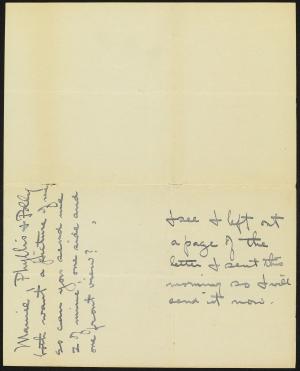 I see I left out
a page of the
letter I sent this
morning so I will
send it now.
Mamie, Phyllis & Polly
both want a picture of my
so can you send me
2 of mine, one side and
one front view?